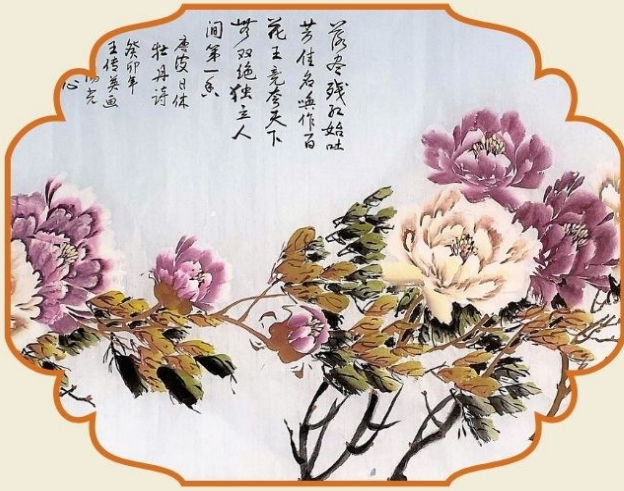 落尽残红始吐
芳佳名唤作百
花王竞夸天下
无双绝独立人
间第一香
唐皮日休
牡丹诗
癸卯年
王传英画